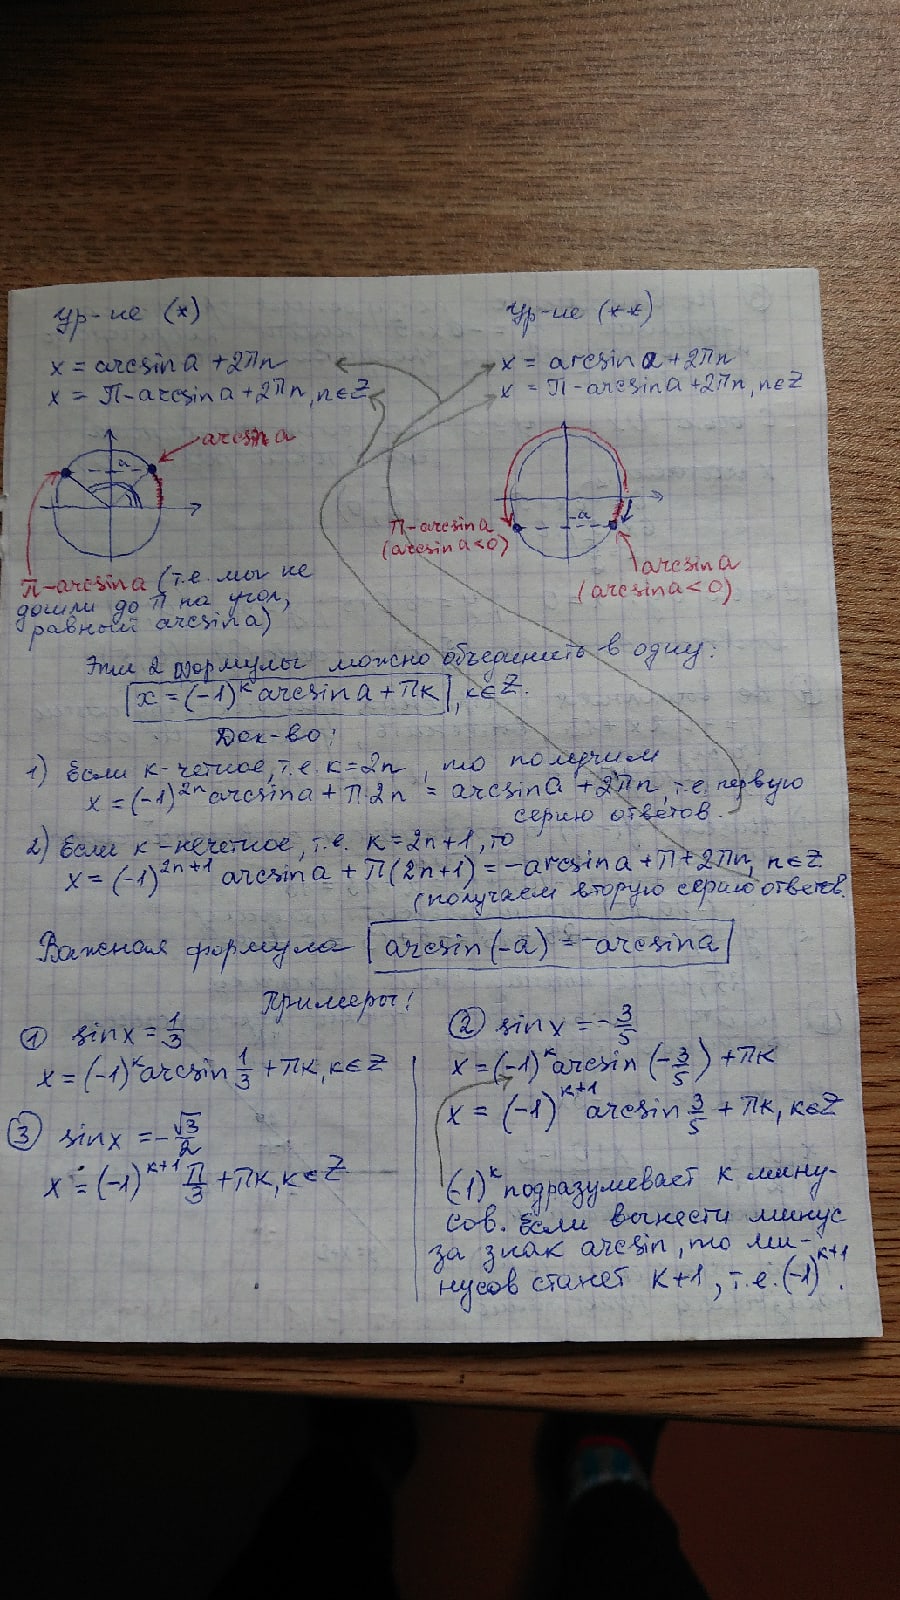 Ур-ие (*)
x = arcsin a + 2πn
x = π - arcsin a + 2πn, n∈Z
arcsin a
a
π - arcsin a (т.е. мы не
дошли до π на угол,
равный arcsin a)
Ур-ие (**)
x = arcsin a + 2πn
x = π - arcsin a + 2πn, n∈Z
a
π - arcsin a
(arcsin a < 0)
arcsin a
(arcsin a < 0)
Эти 2 формулы можно объединить в одну:
x = (-1)^k arcsin a + πk, k∈Z.
Док-во:
1) Если k-четное, т.е. k=2n, то получим
x = (-1)^{2n} arcsin a + π·2n = arcsin a + 2πn, т.е. первую
серию ответов.
2) Если k-нечетное, т.е. k=2n+1, то
x = (-1)^{2n+1} arcsin a + π(2n+1) = -arcsin a + π + 2πn, n∈Z
(получаем вторую серию ответов.
Важная формула arcsin(-a) = -arcsin a
Примеры:
① sin x = 1/3
x = (-1)^k arcsin 1/3 + πk, k∈Z
② sin x = -3/5
x = (-1)^k arcsin (-3/5) + πk
x = (-1)^{k+1} arcsin 3/5 + πk, k∈Z
③ sin x = -√3/2
x = (-1)^{k+1} π/3 + πk, k∈Z
(-1)^k подразумевает k мину-
сов. Если вынести минус
за знак arcsin, то ми-
нусов станет k+1, т.е. (-1)^{k+1}.